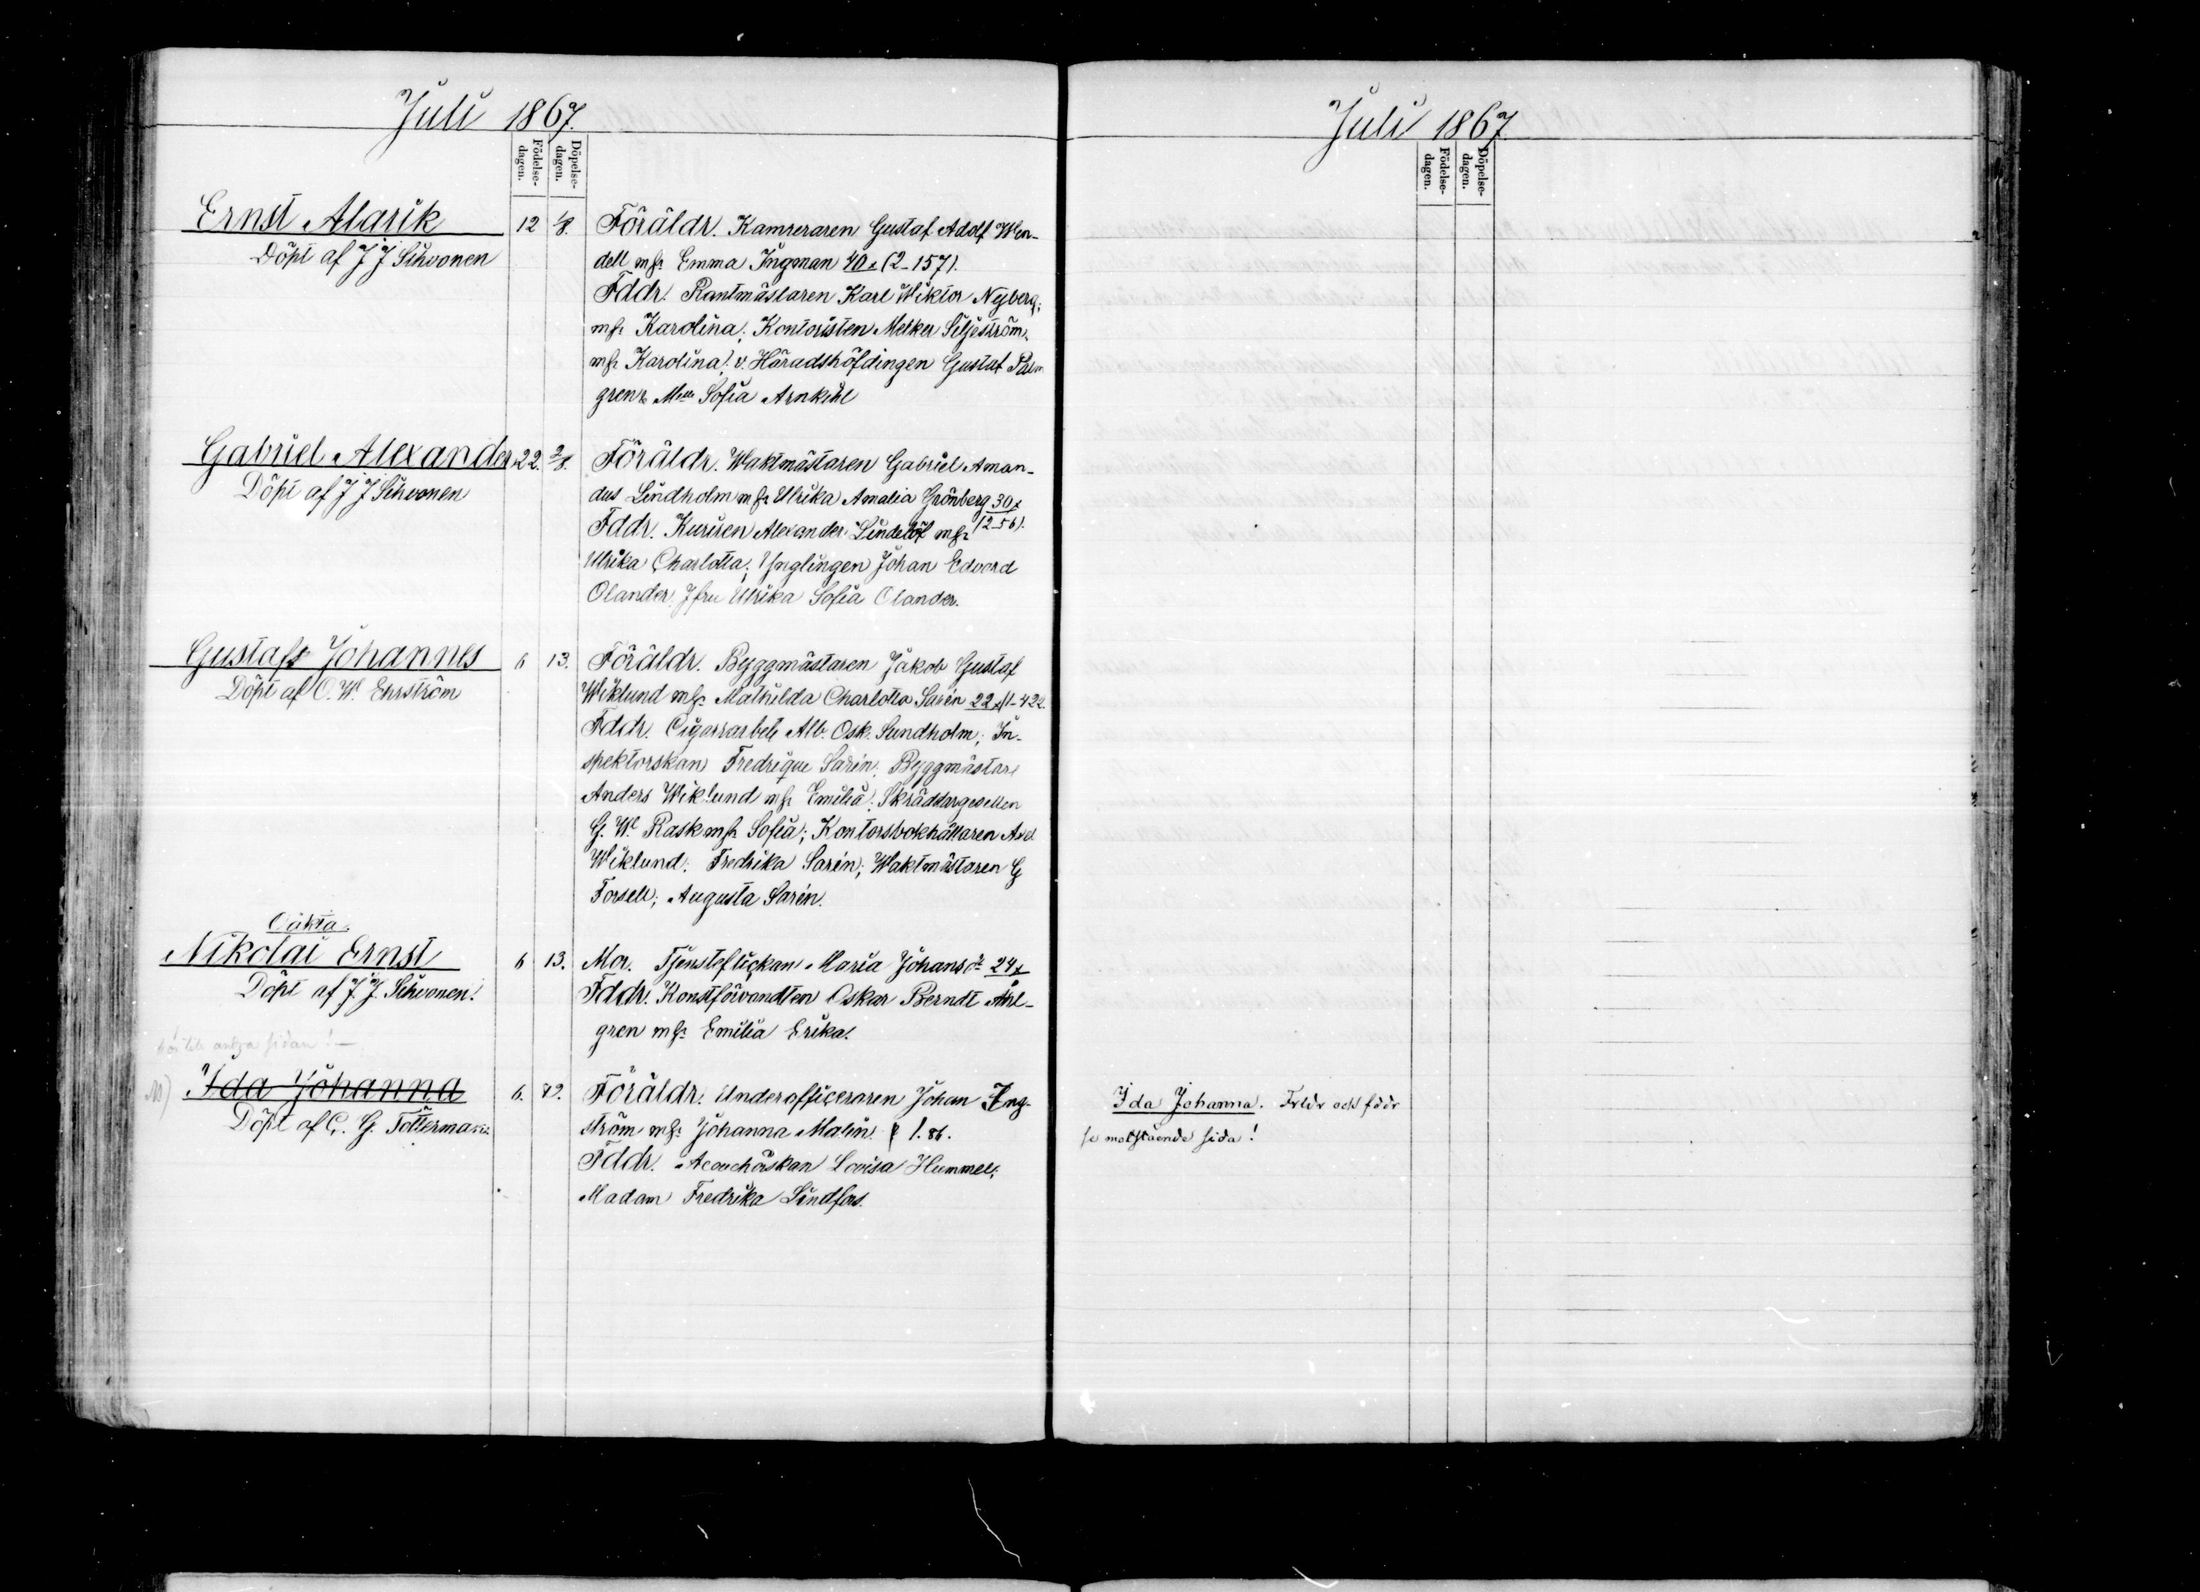 Juli 1867.
Födelse-dagen. Döpelse-dagen.
Ernst Alarik 12 1/8. Föräldr. Kamreraren Gustaf Adolf Wen-
Döpt af J J Sihvonen dell m h: Emma Ingman 40 x (2-157).
Fddr. Rantmästaren Karl Wiktor Nyberg;
m h: Karolina; Kontoristen Melker Siljeström
m h: Karolina; v. Häradshöfdingen Gustaf Palm
gren & Mlle Sofia Arnkihl
Gabriel Alexander 22. 2/8. Föräldr. Waktmästaren Gabriel Aman-
Döpt af J J Sihvonen dus Lindholm m h: Ulrika Amalia Grönberg 30 x
Fddr. Kuriren Alexander Lindelöf m h: (2-56).
Ulrika Charlotta; Ynglingen Johan Edvard
Olander, Jfru Ulrika Sofia Olander.
Gustaf Johannes 6 13. Föräldr. Byggmästaren Jakob Gustaf
Döpt af C. W. Ehrström Wiklund m h: Mathilda Charlotta Sarén 22 x (1-422.
Fddr. Cigarrarbet. Alb. Osk. Sundholm; In-
spektorskan Fredrique Sarén; Byggmästare
Anders Wiklund m h: Emilia; Skräddargesellen
G. W. Rask m h: Sofia; Kontorsbokhållaren Axel
Wiklund; Fredrika Sarén; Waktmästaren G
Forsell; Augusta Sarén.
Oäkta.
Nikolai Ernst 6 13. Mor. Tjensteflickan Maria Johansdr 24 x
Döpt af J. J. Sihvonen. Fddr. Konstförvandten Oskar Berndt Åhl-
gren m h: Emilia Erika.
andra sidan! —
Ida Johanna 6. Föräldr. Underofficeraren Johan Eng-
Döpt af C. G. Totterman ström m h: Johanna Malin 1. 86.
Fddr. Acouchörskan Lovisa Hummel;
Madam Fredrika Lindfors.
Juli 1867
Födelse-dagen. Döpelse-dagen.
Ida Johanna. Frldr och fddr
se motstående sida!